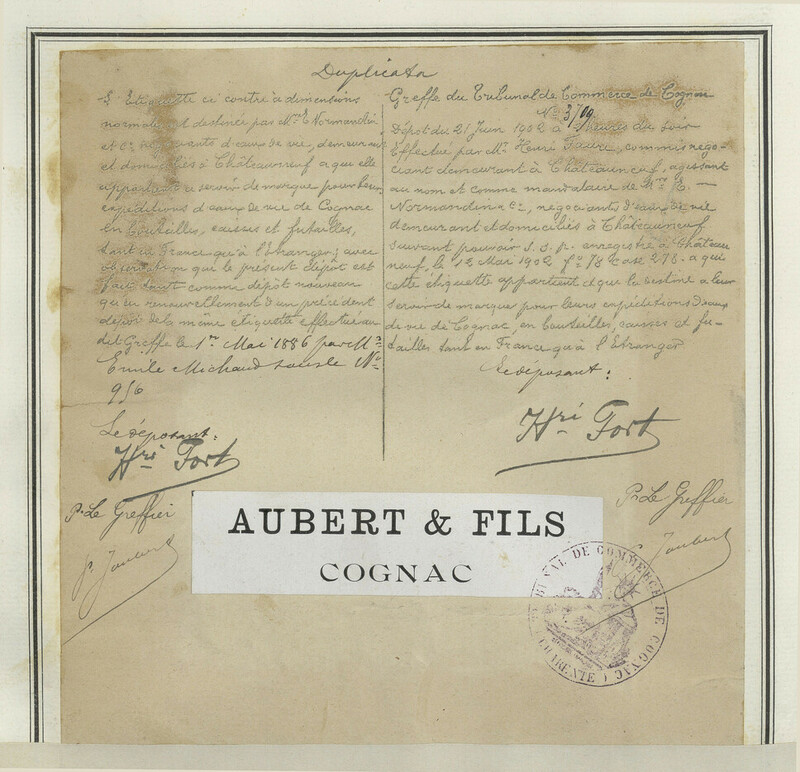 Duplicata
L'Etiquette ci contre à dimensions
normales est destinée par MM. E. Normandin
et Cie négociants d'eaux de vie, demeurant
et domiciliés à Châteauneuf a qui elle
appartient a servir de marque pour leurs
expéditions d'eaux de vie de Cognac
en bouteilles, caisses et futailles,
tant en France qu'à l'Etranger; avec
observation que le présent dépôt est
fait tant comme dépôt nouveau
qu'en renouvellement d'un précédent
dépôt de la même étiquette effectué au
dit Greffe le 1er Mai 1886 par Mr
Emile Michaud sous le No
956
Le déposant:
Hri Fort
Pr Le Greffier
P. Joubert
Greffe du Tribunal de Commerce de Cognac
No 3709
Dépôt du 21 Juin 1902 à heures du soir
Effectué par Mr Henri, commis négo-
ciant demeurant à Châteauneuf, agissant
au nom et comme mandataire de MM. E. —
Normandin & Cie, négociants d'eaux de vie
demeurant et domiciliés à Châteauneuf
suivant pouvoir s.s.p. enregistré à Château
neuf, le 12 Mai 1902 fo 78 Case 278 - a qui
cette étiquette appartient et qui la destine a leur
servir de marque pour leurs expéditions d'eaux
de vie de Cognac, en bouteilles, caisses et fu-
tailles, tant en France qu'à l'Etranger
Le déposant:
Hri Fort
Pr Le Greffier
Joubert
AUBERT & FILS
COGNAC
TRIBUNAL DE COMMERCE DE COGNAC
(CHARENTE)